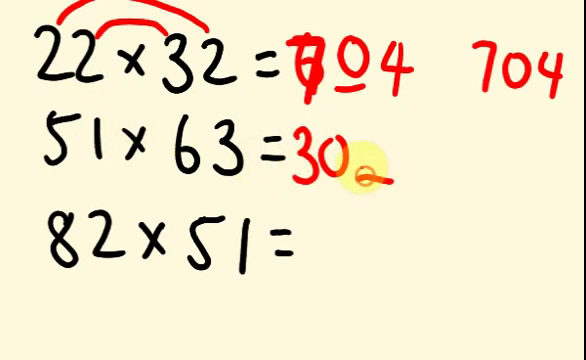 22 × 32 = 704 704
51 × 63 = 30_
82 × 51 =